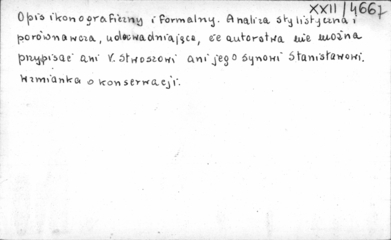 XXII/4667
Opis ikonograficzny i formalny. Analiza stylistyczna i
porównawcza, udowadniające, że autorstwa nie można
przypisać ani V. Stwoszowi ani jego synowi Stanisławowi.
Wzmianka o konserwacji.